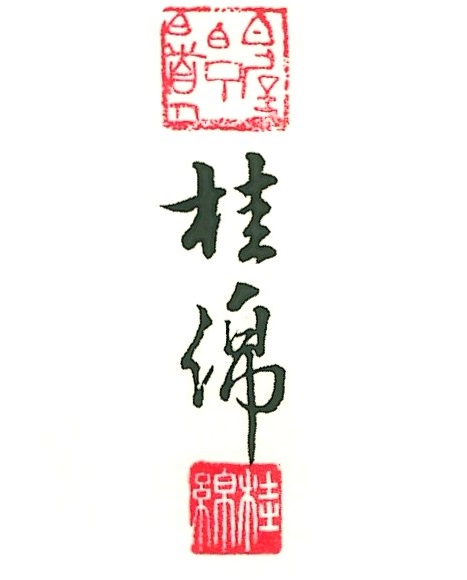 桂綿
桂綿